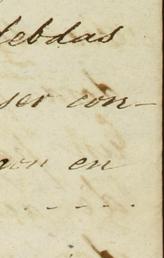 lebdas
ser con-
von en
- - - -